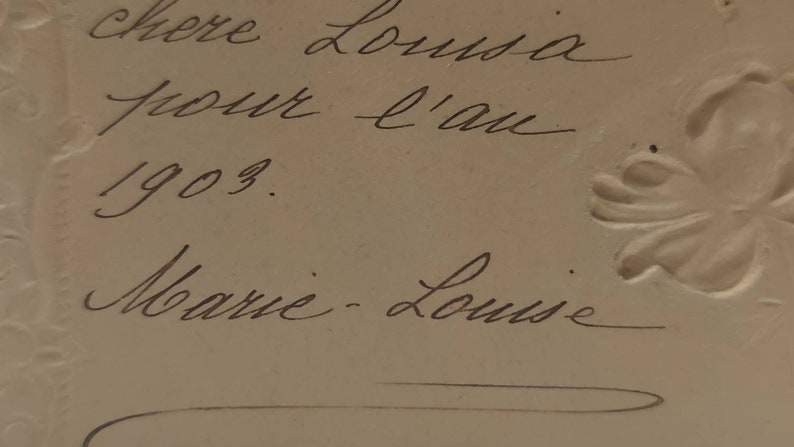 chere Louisa
pour l'an
1903.
Marie-Louise